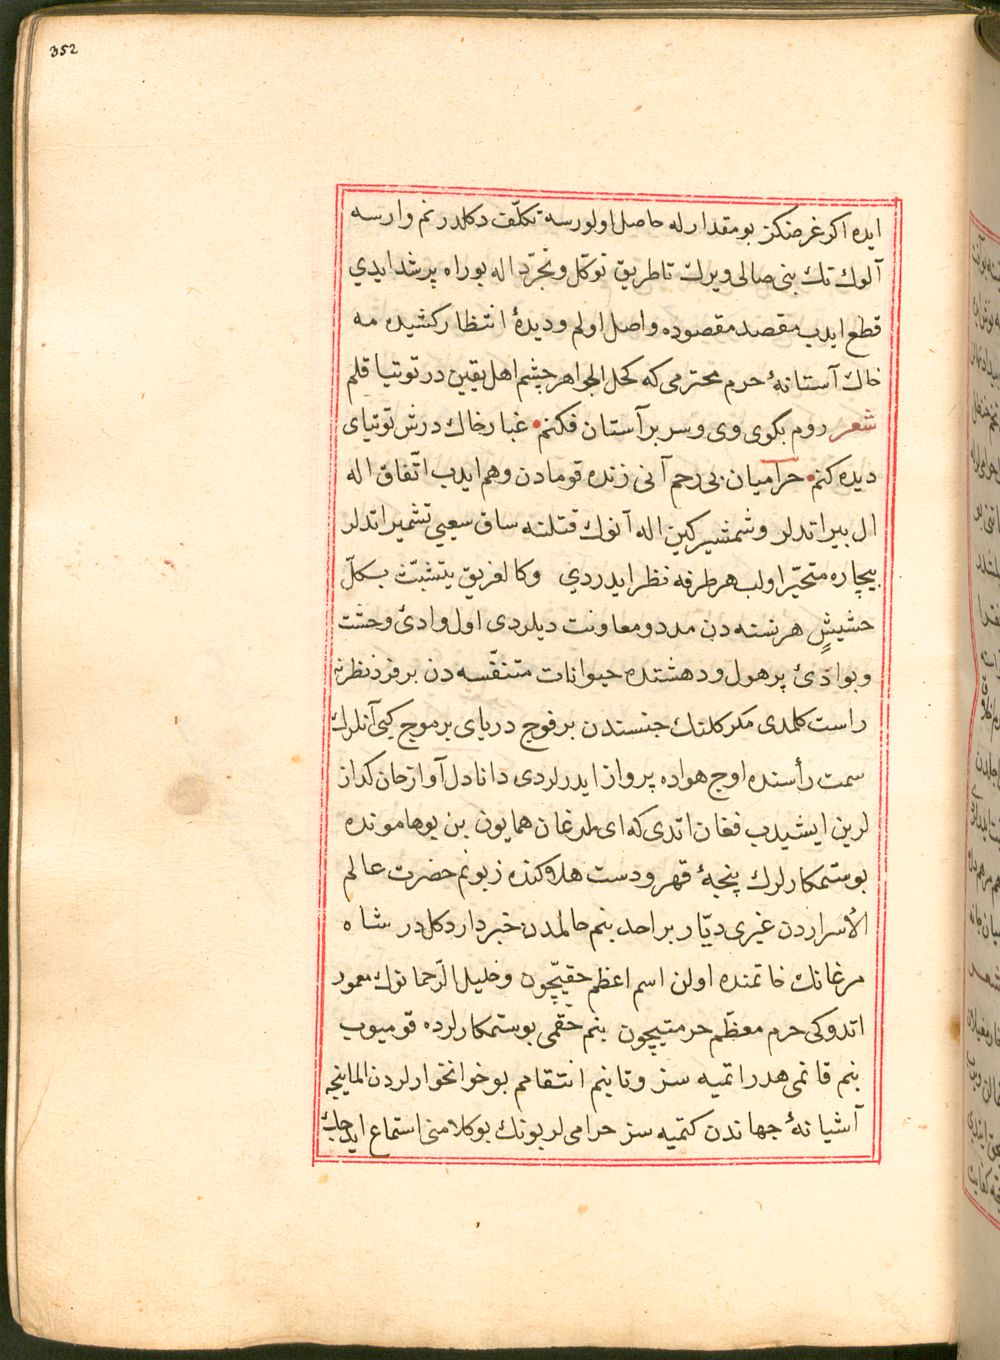 352
ايده اكر غرضكز بو مقدار له حاصل اولورسه تكلّف دكلدر نم وارسه
آلوك تك بنى صالى ويرك تا طريق توكّل و تجرّد اله بو راه پر شدايدي
قطع ايدب مقصد مقصوده واصل اولم و ديدۀ انتظار كشيده مه
خاك آستانۀ حرم محترمى كه كحل الجواهر چشم اهل يقين در توتيا قلم
شعر روم بكوى وى و سر بر آستان فكنم • غبار خاك درش توتياى
ديده كنم • حراميان بى رحم آنى زنده قومادن وهم ايدب اتّفاق اله
ال بير اتدلر و شمشير كين اله آنوك قتلنه ساق سعيى تشمير اتدلر
بيچاره متحيّر اولب هر طرفه نظر ايدردي وكالغريق يتشبّث بكلّ
حشيشٍ هر نسته دن مدد و معاونت ديلردى اول وادئ وحشت
و بوادئ پر هول و دهشتده حيوانات متنفّسه دن بر فرد نظرنه
راست كلمدى مكر كلنك جنسندن بر فوج درياى پر موج كبى آنلرك
سمت رأسنده اوج هواده پرواز ايدرلردى دانا دل آواز جان كداز
لرين ايشيدب فغان اتدى كه اى مرغان همايون بن بو هامونده
بو ستمكارلرك پنجۀ قهر و دست هلاكنده زبونم حضرت عالم
الأسراردن غيرى ديّار بر احد بنم حالمدن خبردار دكلدر شاه
مرغانك خاتمنده اولن اسم اعظم حقيچون و خليل الرّحمانوك معمور
اتدوكى حرم معظّم حرمتيچون بنم حقّمى بو ستمكارلرده قوميوب
بنم قانمى هدر اتميه سز و تا بنم انتقامم بو خوانخوارلردن الماينجه
آشيانۀ جهاندن كتميه سز حرامى لر بونك بو كلامنى استماع ايدجك